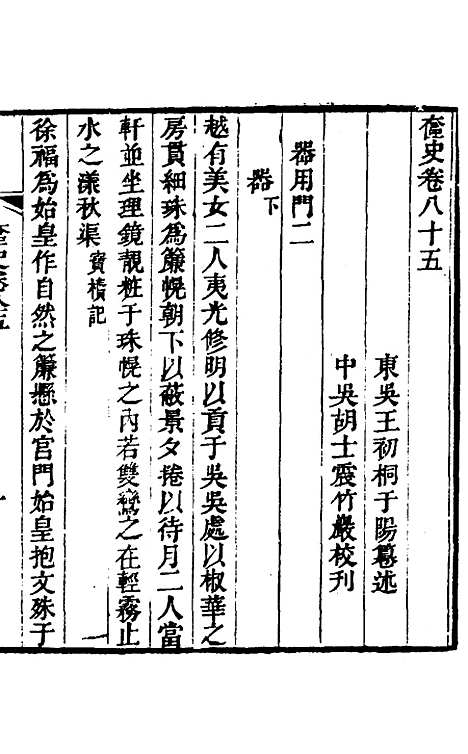 奩史卷八十五
東吳王初桐于陽纂述
中吳胡士震竹巖校刊
器用門二
器下
越有美女二人夷光修明以貢于吳吳處以椒華之
房貫細珠爲簾幌朝下以蔽景夕捲以待月二人當
軒並坐理鏡靚粧于珠幌之內若雙鸞之在輕霧止
水之漾秋渠寶櫝記
徐福爲始皇作自然之簾懸於宫門始皇抱文殊子